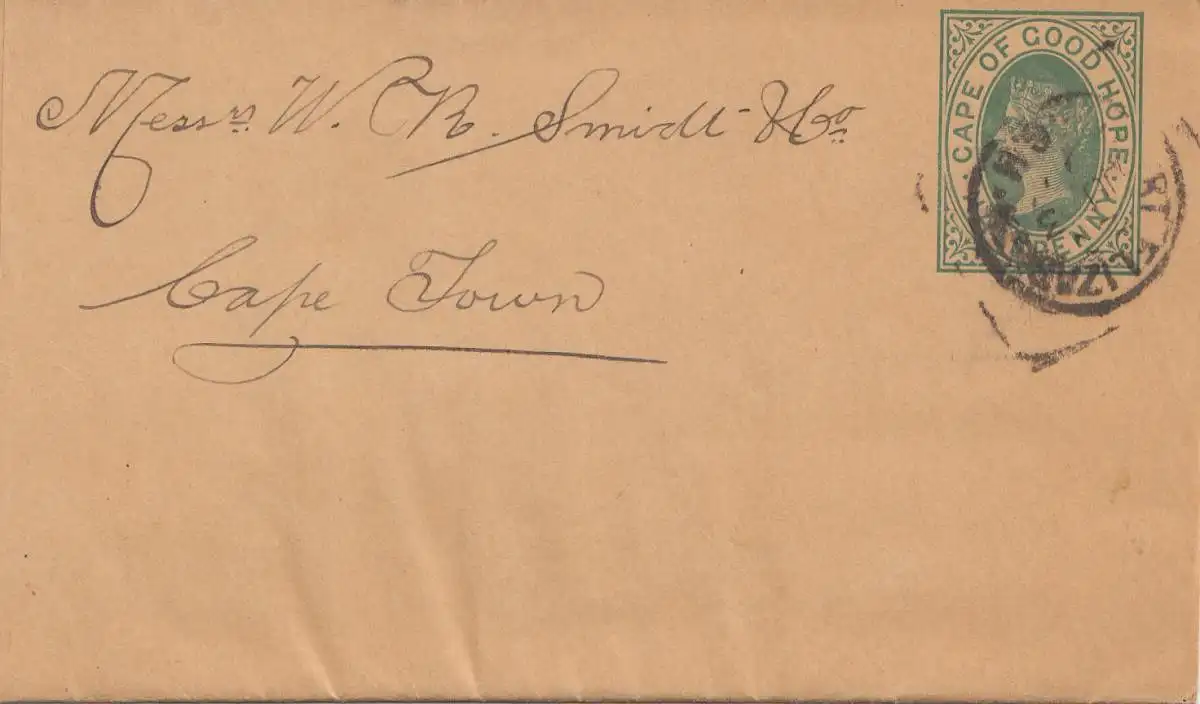 Messrs W. R. Smidt & Co
Cape Town
CAPE OF GOOD HOPE
PENNY
RT ELIZA